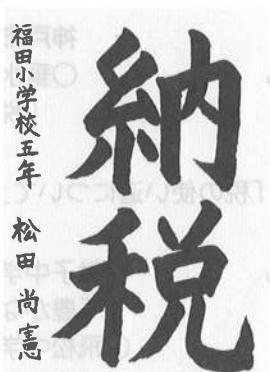 納税
福田小学校五年 松田尚憲